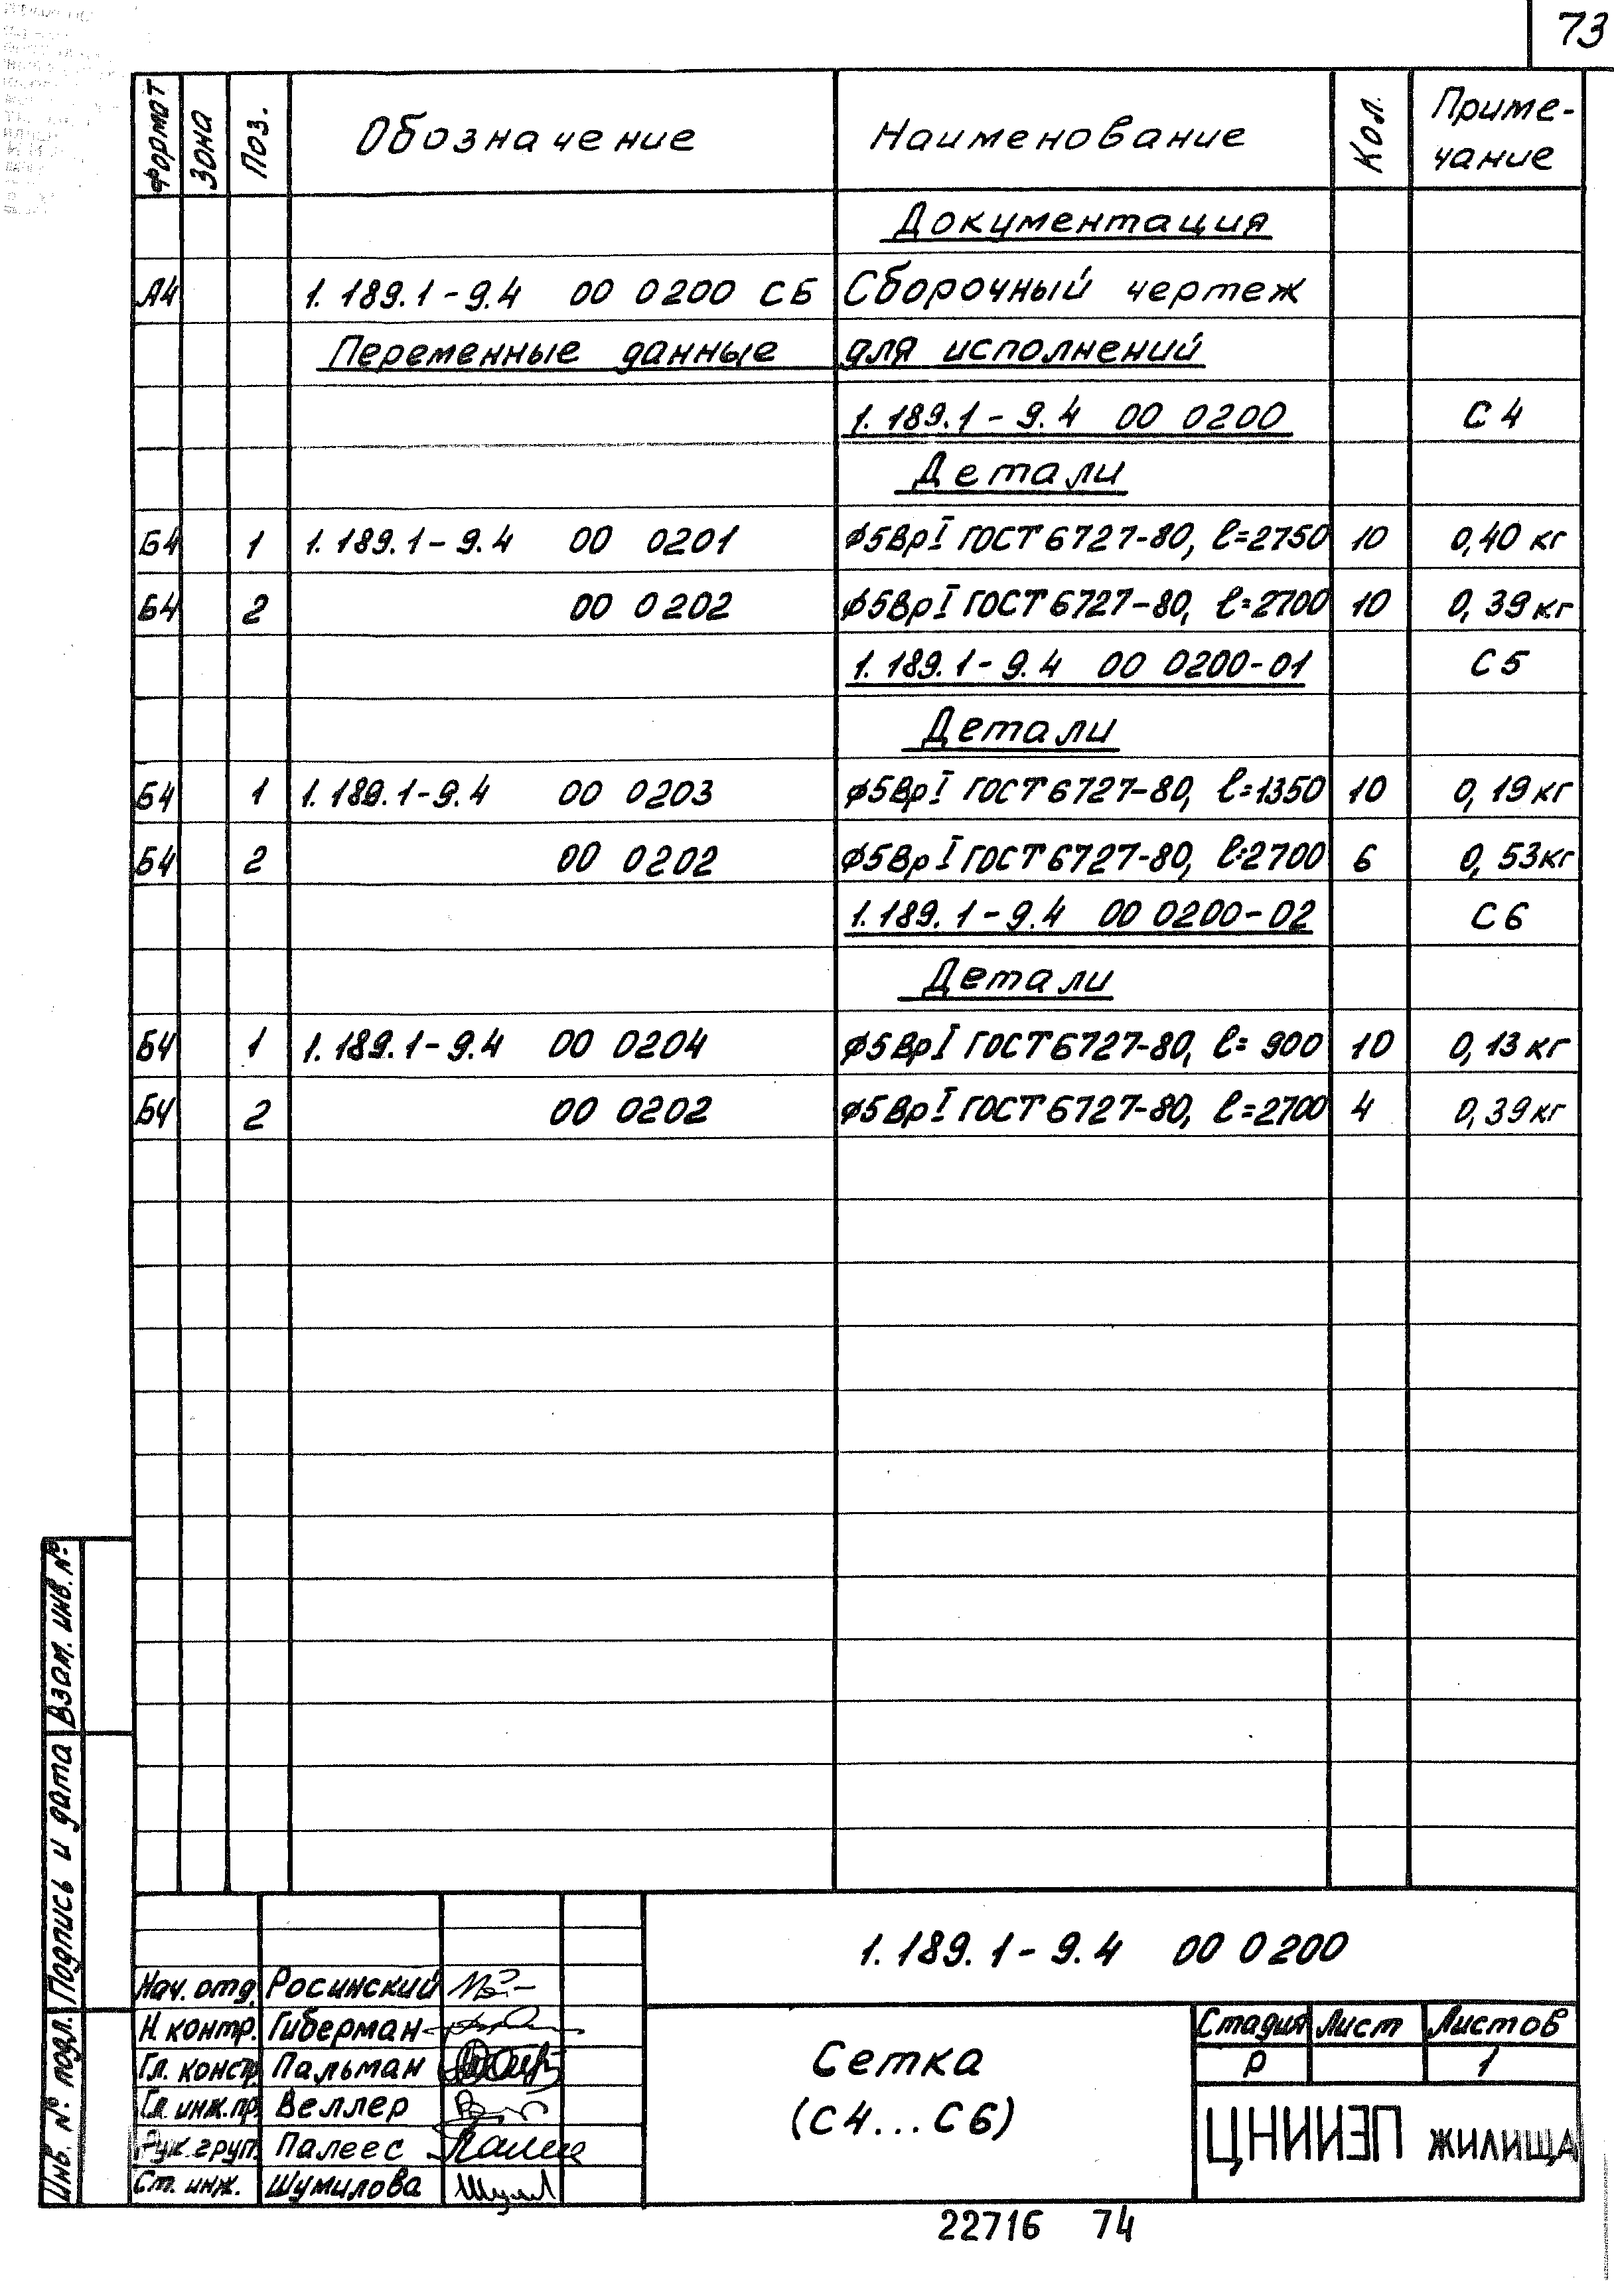 73
Формат Зона Поз. Обозначение Наименование Кол. Приме-
чание
Документация
А4 1.189.1-9.4 00 0200 СБ Сборочный чертеж
Переменные данные для исполнений
1.189.1-9.4 00 0200 С4
Детали
Б4 1 1.189.1-9.4 00 0201 ⌀5ВрI ГОСТ 6727-80, ℓ=2750 10 0,40 кг
Б4 2 00 0202 ⌀5ВрI ГОСТ 6727-80, ℓ=2700 10 0,39 кг
1.189.1-9.4 00 0200-01 С5
Детали
Б4 1 1.189.1-9.4 00 0203 ⌀5ВрI ГОСТ 6727-80, ℓ=1350 10 0,19 кг
Б4 2 00 0202 ⌀5ВрI ГОСТ 6727-80, ℓ=2700 6 0,53 кг
1.189.1-9.4 00 0200-02 С6
Детали
Б4 1 1.189.1-9.4 00 0204 ⌀5ВрI ГОСТ 6727-80, ℓ=900 10 0,13 кг
Б4 2 00 0202 ⌀5ВрI ГОСТ 6727-80, ℓ=2700 4 0,39 кг
Взам. инв. №
Подпись и дата
Инв. № подл.
1.189.1-9.4 00 0200
Нач. отд. Росинский
Н. контр. Гиберман
Гл. констр. Пальман
Гл. инж. пр. Веллер
Рук. груп. Палеес
Ст. инж. Шумилова
Сетка
(С4...С6)
Стадия Лист Листов
Р 1
ЦНИИЭП жилища
22716 74